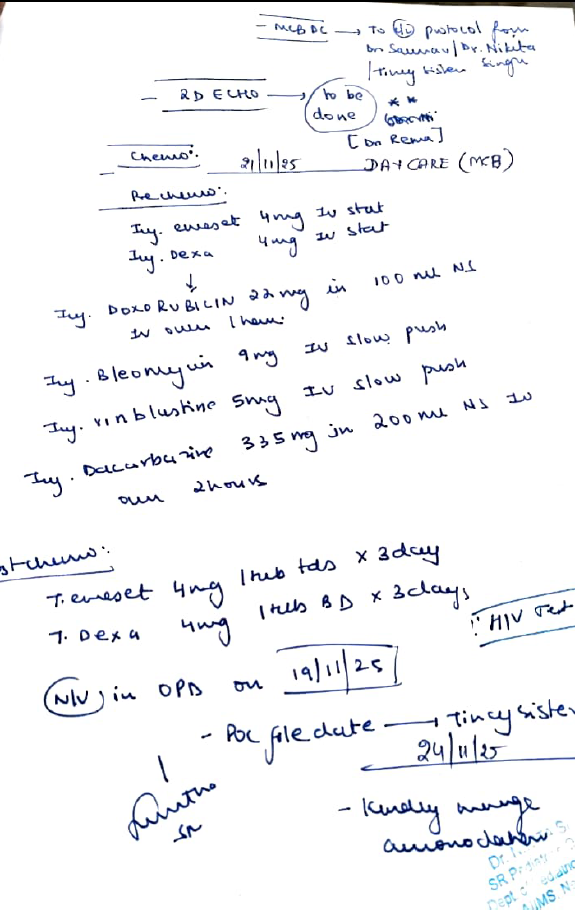 - MCB DC → To (H) protocol from
Dr Saurav / Dr. Nikita
/ Tincy sister Singh
- 2D ECHO → to be done **
[Dr Rema]
Chemo: 21/11/25 DAYCARE (MCB)
Prechemo:
Inj. emeset 4mg IV stat
Inj. Dexa 4mg IV stat
↓
Inj. DOXORUBILIN 22mg in 100 ml NS
IV over 1 hour.
Inj. Bleomycin 9mg IV slow push
Inj. vinblastine 5mg IV slow push
Inj. Dacarbazine 335mg in 200ml NS IV
over 2hours
stchemo:
T. emeset 4mg 1tab tds x 3day
T. Dexa 4mg 1tab BD x 3days
HIV Test
N/V in OPD on 19/11/25
- Poc file date → Tincy sister
24/11/25
SR
- Kindly
Dr.
SR
Dept